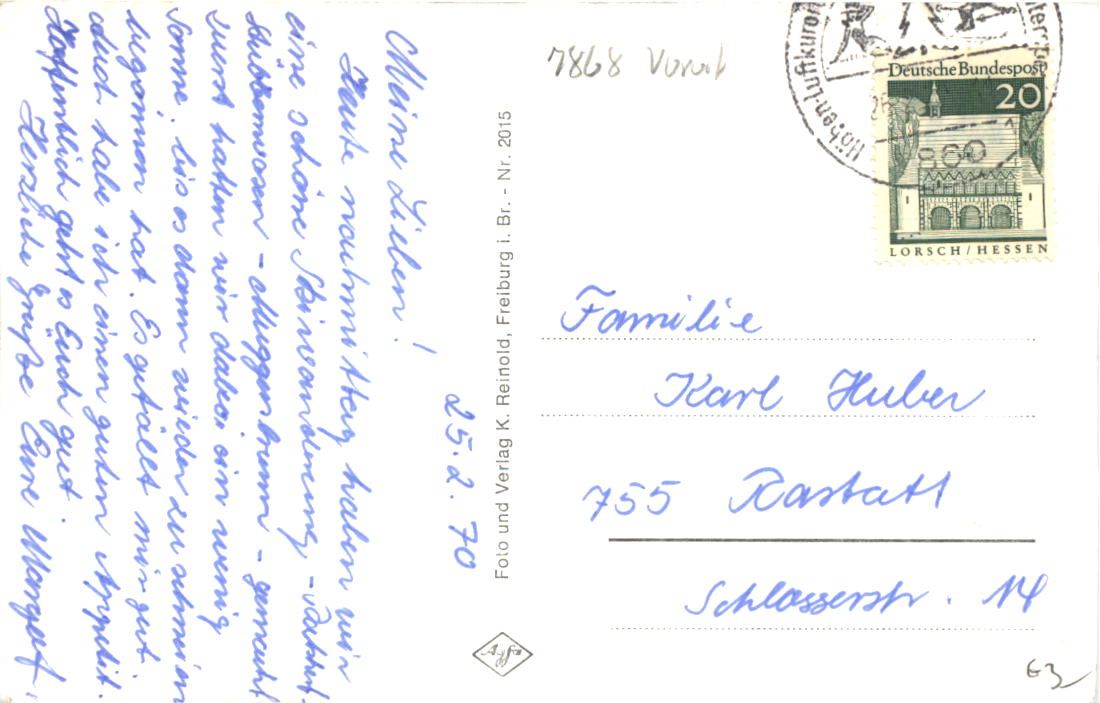 25.2.70
Meine Lieben!
Heute nachmittag haben wir
eine schöne Skiwanderung -
- Muggenbrunn - gemacht
zuerst hatten wir dabei ein wenig
Sonne, bis es dann wieder zu schneien
begonnen hat. Es gefällt mir gut
auch habe ich einen guten Appetit.
Hoffentlich geht es Euch gut.
Herzliche Grüße Eure Margret.
Foto und Verlag K. Reinold, Freiburg i. Br. - Nr. 2015
Agfa
7868
Höhen-Luftkurort
860
Deutsche Bundespost
20
LORSCH/HESSEN
Familie
Karl Huber
755 Rastatt
Schlosserstr. 14